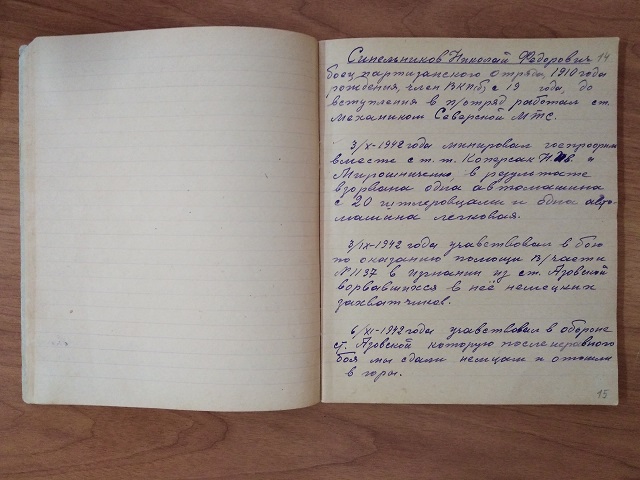 Синельников Николай Федорович 14
боец партизанского отряда, 1910 года
рождения, член ВКП(б) с 19 года, до
вступления в п/отряд работал ст.
механиком Северской МТС.
3/IX-1942 года минировал
вместе с т.т. и
Мирошниченко, в результате
взорвана одна автомашина
с 20 гитлеровцами и одна авто-
машина легковая.
3/IX-1942 года учавствовал в бою
по оказанию помощи В/части
№1137 в изгнании из ст. Азовской
ворвавшихся в неё немецких
захватчиков.
6/XI-1942 года учавствовал в обороне
ст. Азовской которую после неравного
боя мы сдали немцам и отошли
в горы.
15